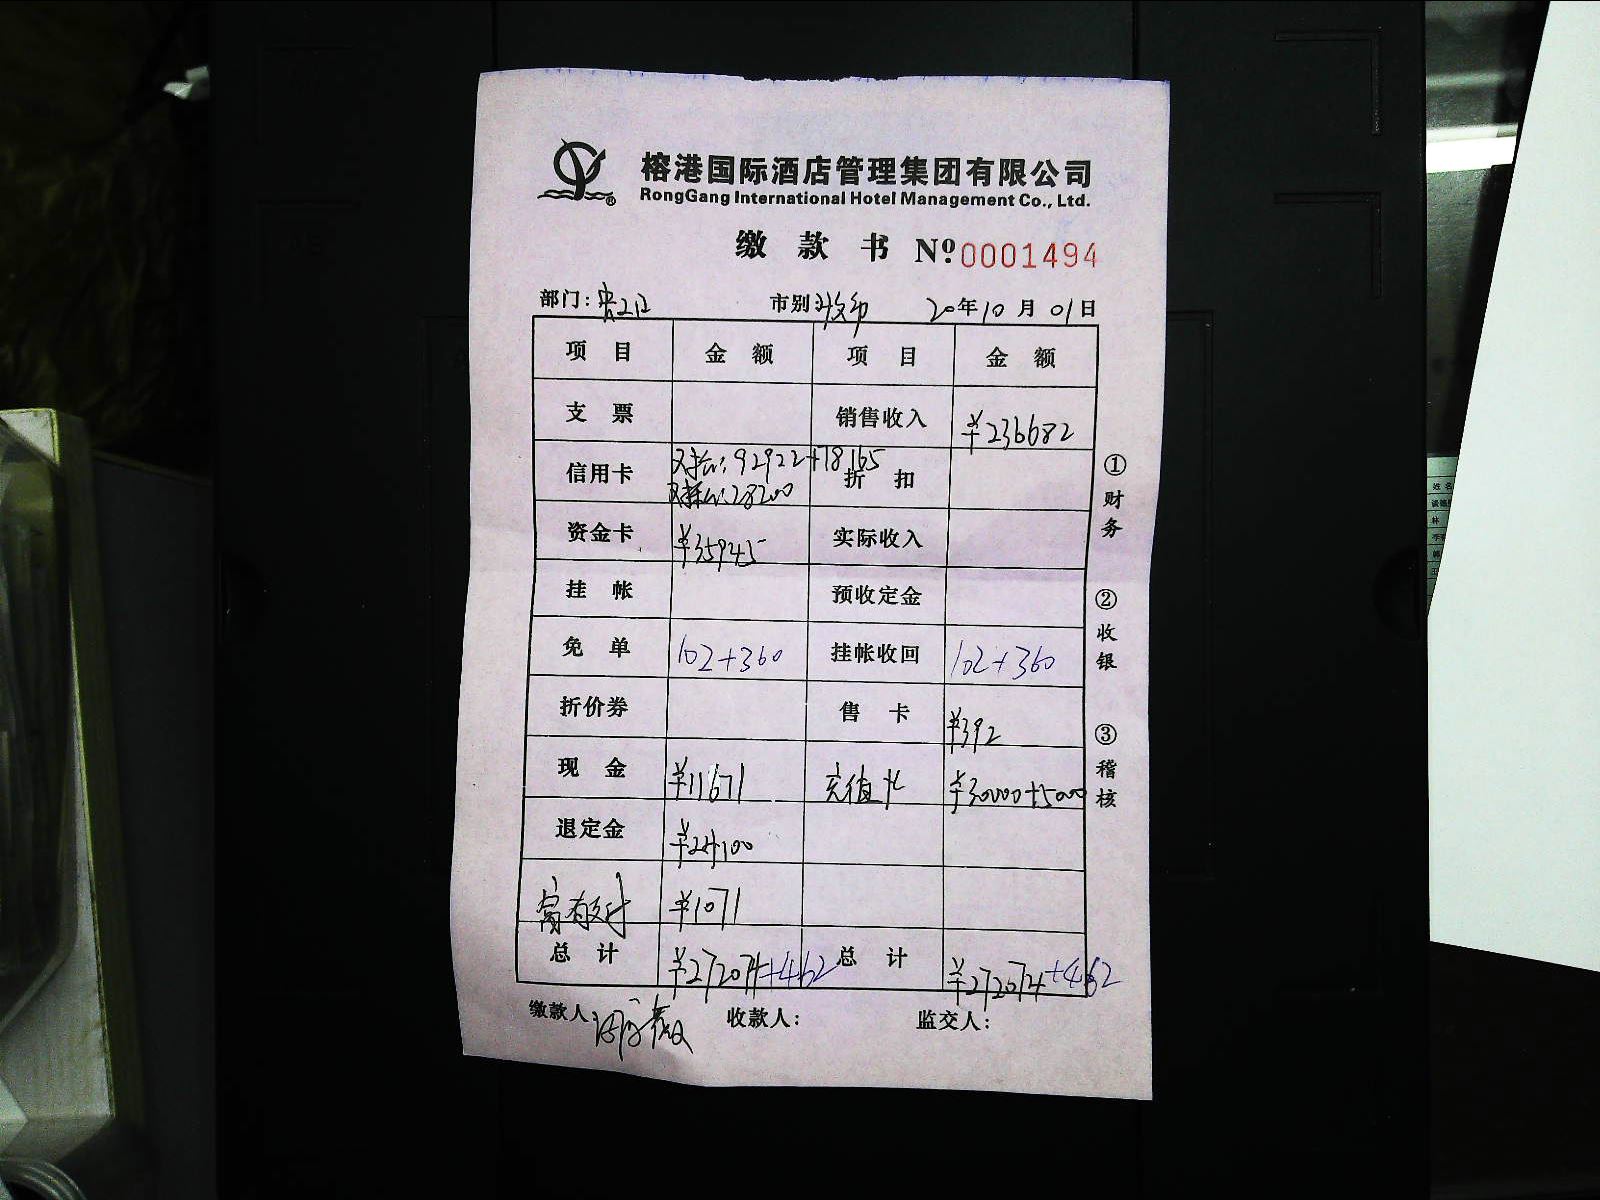 榕港国际酒店管理集团有限公司
RongGang International Hotel Management Co., Ltd.
缴 款 书 Nº 0001494
部门: 市别: 20年10月01日
项 目 金 额 项 目 金 额
支 票 销售收入 ¥236682
信用卡 92922+78165 折 扣
28200
资金卡 ¥35945 实际收入
挂 帐 预收定金
免 单 102+360 挂帐收回 102+360
折价券 售 卡 ¥392
现 金 ¥11671 充值卡 ¥30000+5000
退定金 ¥24100
¥1071
总 计 ¥272074+462 总 计 ¥272074+462
缴款人: 收款人: 监交人:
①财务
②收银
③稽核